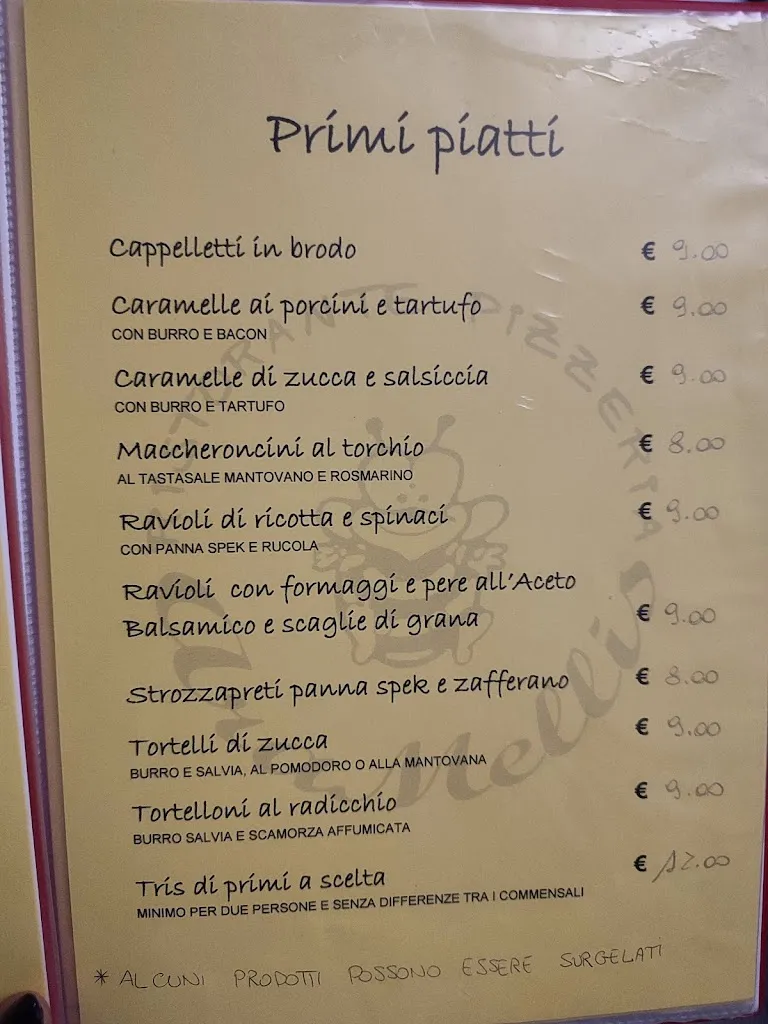 Primi piatti
Cappelletti in brodo € 9.00
Caramelle ai porcini e tartufo € 9.00
CON BURRO E BACON
Caramelle di zucca e salsiccia € 9.00
CON BURRO E TARTUFO
Maccheroncini al torchio € 8.00
AL TASTASALE MANTOVANO E ROSMARINO
Ravioli di ricotta e spinaci € 9.00
CON PANNA SPEK E RUCOLA
Ravioli con formaggi e pere all'Aceto
Balsamico e scaglie di grana € 9.00
Strozzapreti panna spek e zafferano € 8.00
Tortelli di zucca € 9.00
BURRO E SALVIA, AL POMODORO O ALLA MANTOVANA
Tortelloni al radicchio € 9.00
BURRO SALVIA E SCAMORZA AFFUMICATA
Tris di primi a scelta € 12.00
MINIMO PER DUE PERSONE E SENZA DIFFERENZE TRA I COMMENSALI
* ALCUNI PRODOTTI POSSONO ESSERE SURGELATI
RISTORANTE PIZZERIA
Mellis